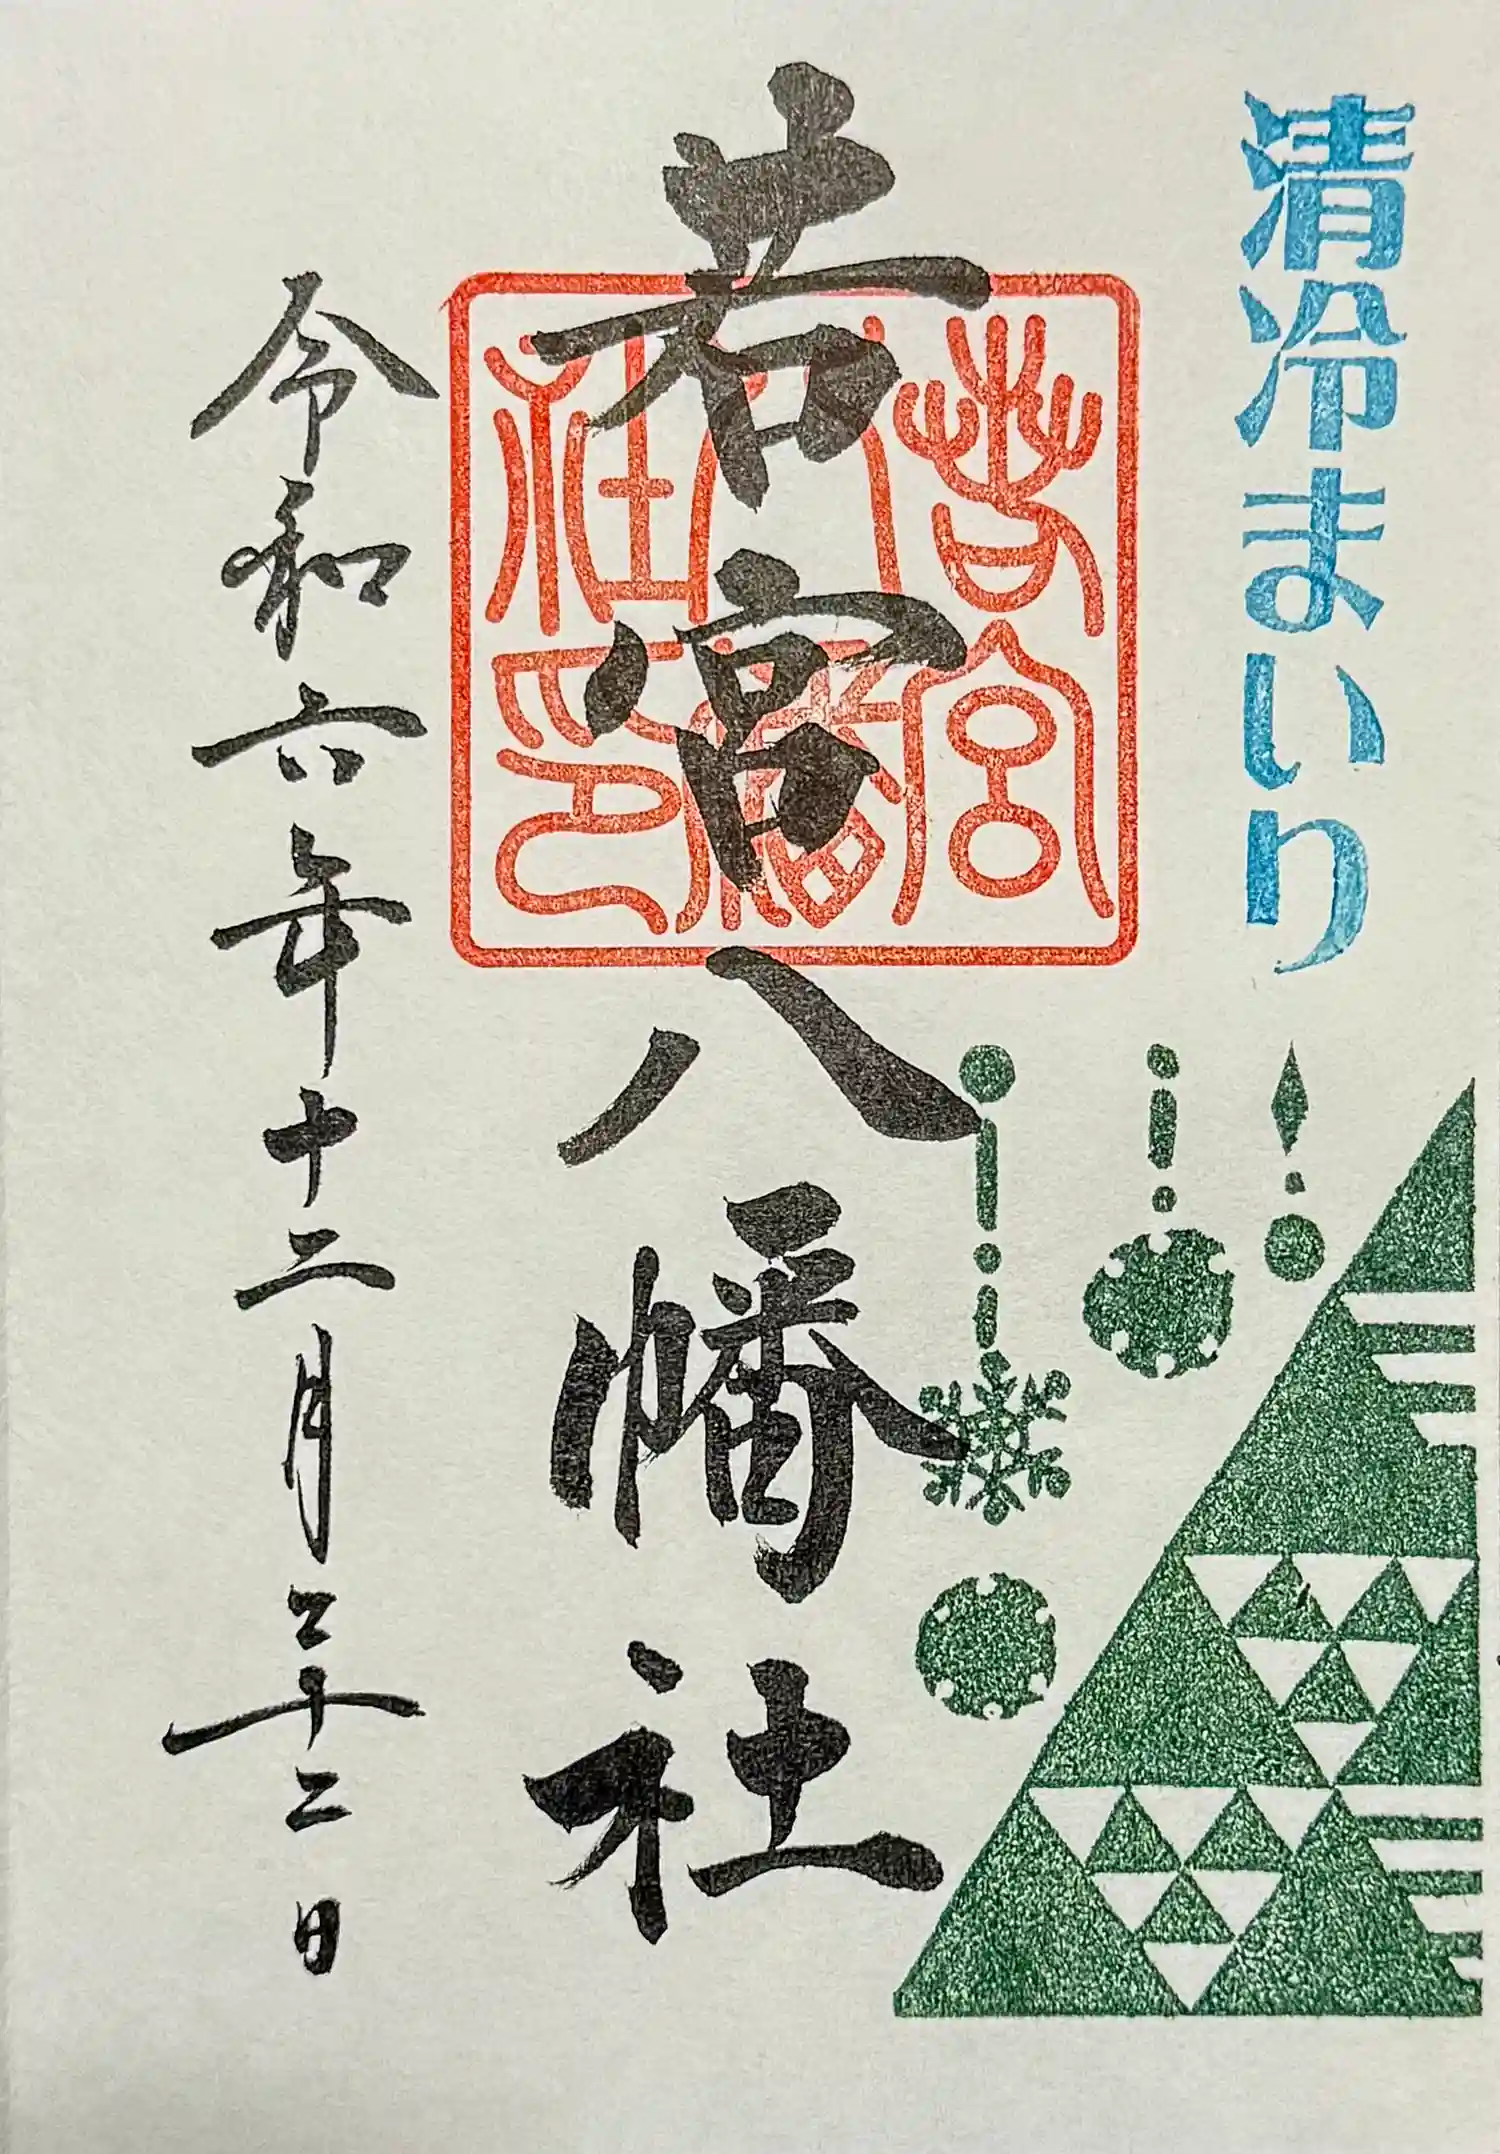 清冷まいり
若宮八幡社
若宮八幡社印
令和六年十二月二十二日